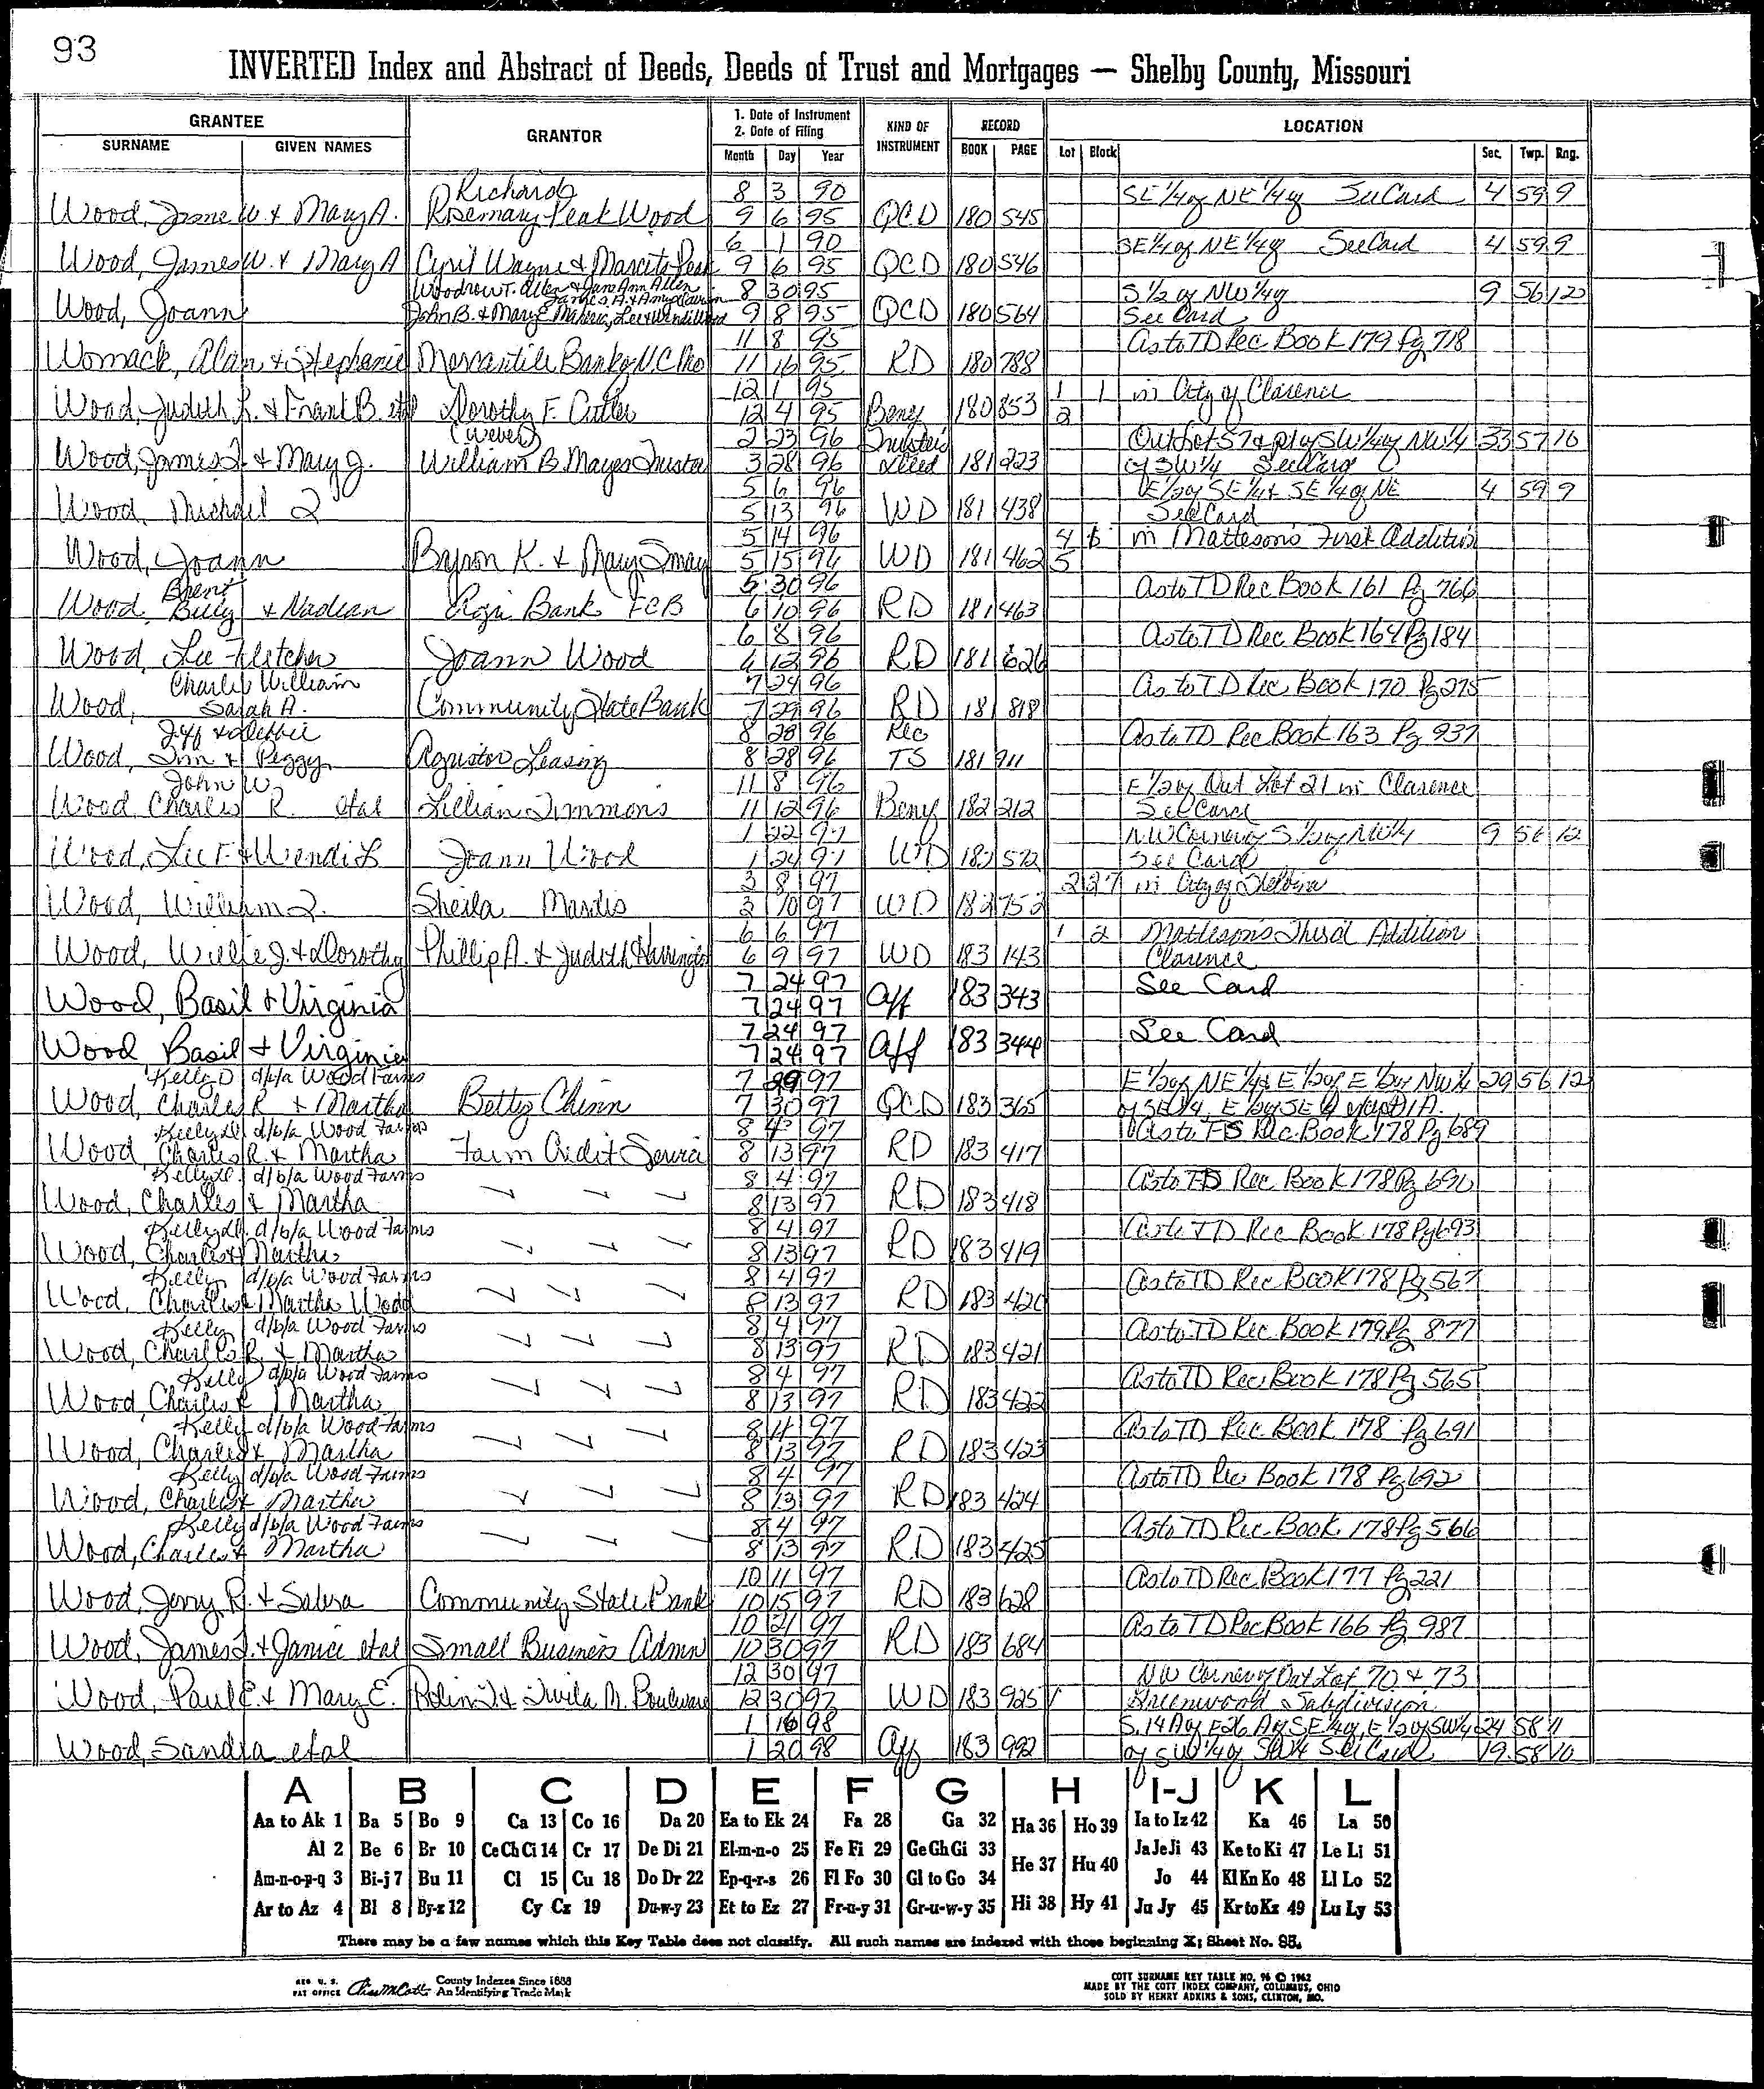 93
INVERTED Index and Abstract of Deeds, Deeds of Trust and Mortgages — Shelby County, Missouri
GRANTEE GRANTOR 1. Date of Instrument 2. Date of Filing KIND OF INSTRUMENT RECORD LOCATION
SURNAME GIVEN NAMES Month Day Year BOOK PAGE Lot Block Sec. Twp. Rng.
Richard 8 3 90 SE 1/4 of NE 1/4 of See Card 4 59 9
Wood, Jame W. & Mary A. Rosemary Peak Wood 9 6 95 QCD 180 545
6 1 90 SE 1/4 of NE 1/4 of See Card 4 59 9
Wood, James W. & Mary A Cyril Wayne & Marcita Peak 9 6 95 QCD 180 546
Woodrow T. Allen & Jane Ann Allen 8 30 95 S 1/2 of NW 1/4 of 9 56 12
Wood, Joann John B. & Mary E. 9 8 95 QCD 180 564 See Card
11 8 95 As to TD Rec Book 179 Pg 718
Womack, Alan & Stephanie Mercantile Bank of N.C. Mo 11 16 95 RD 180 788
12 1 95 1 1 in City of Clarence
Wood, Judith L. & Frank B. etal Dorothy F. Cutler 12 4 95 Beny 180 853 2
(Weber) 2 23 96 Trustee's Out Lot 57 & pt of SW 1/4 of NW 1/4 33 57 10
Wood, James & Mary J. William B. Mayes Trustee 3 28 96 Deed 181 223 of SW 1/4 See Card
5 6 96 E 1/2 of SE 1/4 & SE 1/4 of NE 4 59 9
Wood, Michael 5 13 96 WD 181 438 See Card
5 14 96 4 6 in Matteson's First Addition
Wood, Joann Byron K. & Mary Smay 5 15 96 WD 181 462 5
Brent 5 30 96 As to TD Rec Book 161 Pg 766
Wood, Billy & Nadean Bank FCB 6 10 96 RD 181 463
6 8 96 As to TD Rec Book 164 Pg 184
Wood, Lee Fletcher Joann Wood 6 12 96 RD 181 626
Charlie William 7 24 96 As to TD Rec. Book 170 Pg 275
Wood, Sarah A. Community State Bank 7 29 96 RD 181 818
Jeff & Debbie 8 28 96 Rec As to TD Rec Book 163 Pg 937
Wood, Tim & Peggy Agristor Leasing 8 28 96 TS 181 911
John W. 11 8 96 E 1/2 of Out Lot 21 in Clarence
Wood, Charles R. etal Lillian Timmons 11 12 96 Beny 182 212 See Card
1 22 97 NW Corner of S 1/2 of NW 1/4 9 56 12
Wood, Lee F. & Wendi L Joann Wood 1 24 97 WD 182 572 See Card
3 8 97 2 27 in City of Shelbina
Wood, William Sheila Mardis 3 10 97 WD 182 752
6 6 97 1 2 Matteson's Third Addition
Wood, Willie J. & Dorothy Phillip A. & Judith Harrington 6 9 97 WD 183 143 Clarence
7 24 97 See Card
Wood, Basil & Virginia 7 24 97 Aff 183 343
7 24 97 See Card
Wood Basil & Virginia 7 24 97 Aff 183 344
Kelly D d/b/a Wood Farms 7 29 97 E 1/2 of NE 1/4 & E 1/2 of E 1/2 of NW 1/4 29 56 12
Wood, Charles R & Martha Betty Chinn 7 30 97 QCD 183 365 of SE 1/4, E 1/2 of SE 1/4 except 1 A.
Kelly D. d/b/a Wood Farms 8 4 97 As to FS Rec. Book 178 Pg 689
Wood Charles R. & Martha Farm Credit Service 8 13 97 RD 183 417
Kelly D. d/b/a Wood Farms 8 4 97 As to TD Rec Book 178 Pg 690
Wood, Charles & Martha 8 13 97 RD 183 418
Kelly D. d/b/a Wood Farms 8 4 97 As to TD Rec Book 178 Pg 693
Wood, Charles & Martha 8 13 97 RD 183 419
Kelly d/b/a Wood Farms 8 4 97 As to TD Rec Book 178 Pg 567
Wood, Charles & Martha Wood 8 13 97 RD 183 420
Kelly d/b/a Wood Farms 8 4 97 As to TD Rec Book 179 Pg 877
Wood, Charles R. & Martha 8 13 97 RD 183 421
Kelly d/b/a Wood Farms 8 4 97 As to TD Rec Book 178 Pg 565
Wood, Charles & Martha 8 13 97 RD 183 422
Kelly d/b/a Wood Farms 8 4 97 As to TD Rec. Book 178 Pg 691
Wood, Charles & Martha 8 13 97 RD 183 423
Kelly d/b/a Wood Farms 8 4 97 As to TD Rec Book 178 Pg 692
Wood, Charles & Martha 8 13 97 RD 183 424
Kelly d/b/a Wood Farms 8 4 97 As to TD Rec. Book 178 Pg 566
Wood, Charles & Martha 8 13 97 RD 183 425
10 11 97 As to TD Rec Book 177 Pg 221
Wood, Jerry R. & Salena Community State Bank 10 15 97 RD 183 628
10 21 97 As to TD Rec Book 166 Pg 987
Wood, James & Janice etal Small Business Admn 10 30 97 RD 183 684
12 30 97 NW Corner of Out Lot 70 & 73
Wood, Paul E. & Mary E. Robin & Twila M. Bouleware 12 30 97 WD 183 925 1 Greenwood Subdivision
1 16 98 S. 14 A of E 26 A of SE 1/4 of E 1/2 of SW 1/4 24 58 11
Wood, Sandra etal 1 20 98 Aff 183 992 of SW 1/4 of SW 1/4 See Card 19 58 10
A B C D E F G H I-J K L
Aa to Ak 1 Ba 5 Bo 9 Ca 13 Co 16 Da 20 Ea to Ek 24 Fa 28 Ga 32 Ha 36 Ho 39 Ia to Iz 42 Ka 46 La 50
Al 2 Be 6 Br 10 Ce Ch Ci 14 Cr 17 De Di 21 El-m-n-o 25 Fe Fi 29 Ge Gh Gi 33 He 37 Hu 40 Ja Je Ji 43 Ke to Ki 47 Le Li 51
Am-n-o-p-q 3 Bi-j 7 Bu 11 Cl 15 Cu 18 Do Dr 22 Ep-q-r-s 26 Fl Fo 30 Gl to Go 34 Jo 44 Kl Kn Ko 48 Ll Lo 52
Ar to Az 4 Bl 8 By-z 12 Cy Cz 19 Du-w-y 23 Et to Ez 27 Fr-u-y 31 Gr-u-w-y 35 Hi 38 Hy 41 Ju Jy 45 Kr to Kz 49 Lu Ly 53
There may be a few names which this Key Table does not classify. All such names are indexed with those beginning X; Sheet No. 85.
REG U. S. PAT OFFICE County Indexes Since 1888 An Identifying Trade Mark
COTT SURNAME KEY TABLE NO. 96 © 1962
MADE BY THE COTT INDEX COMPANY, COLUMBUS, OHIO
SOLD BY HENRY ADKINS & SONS, CLINTON, MO.